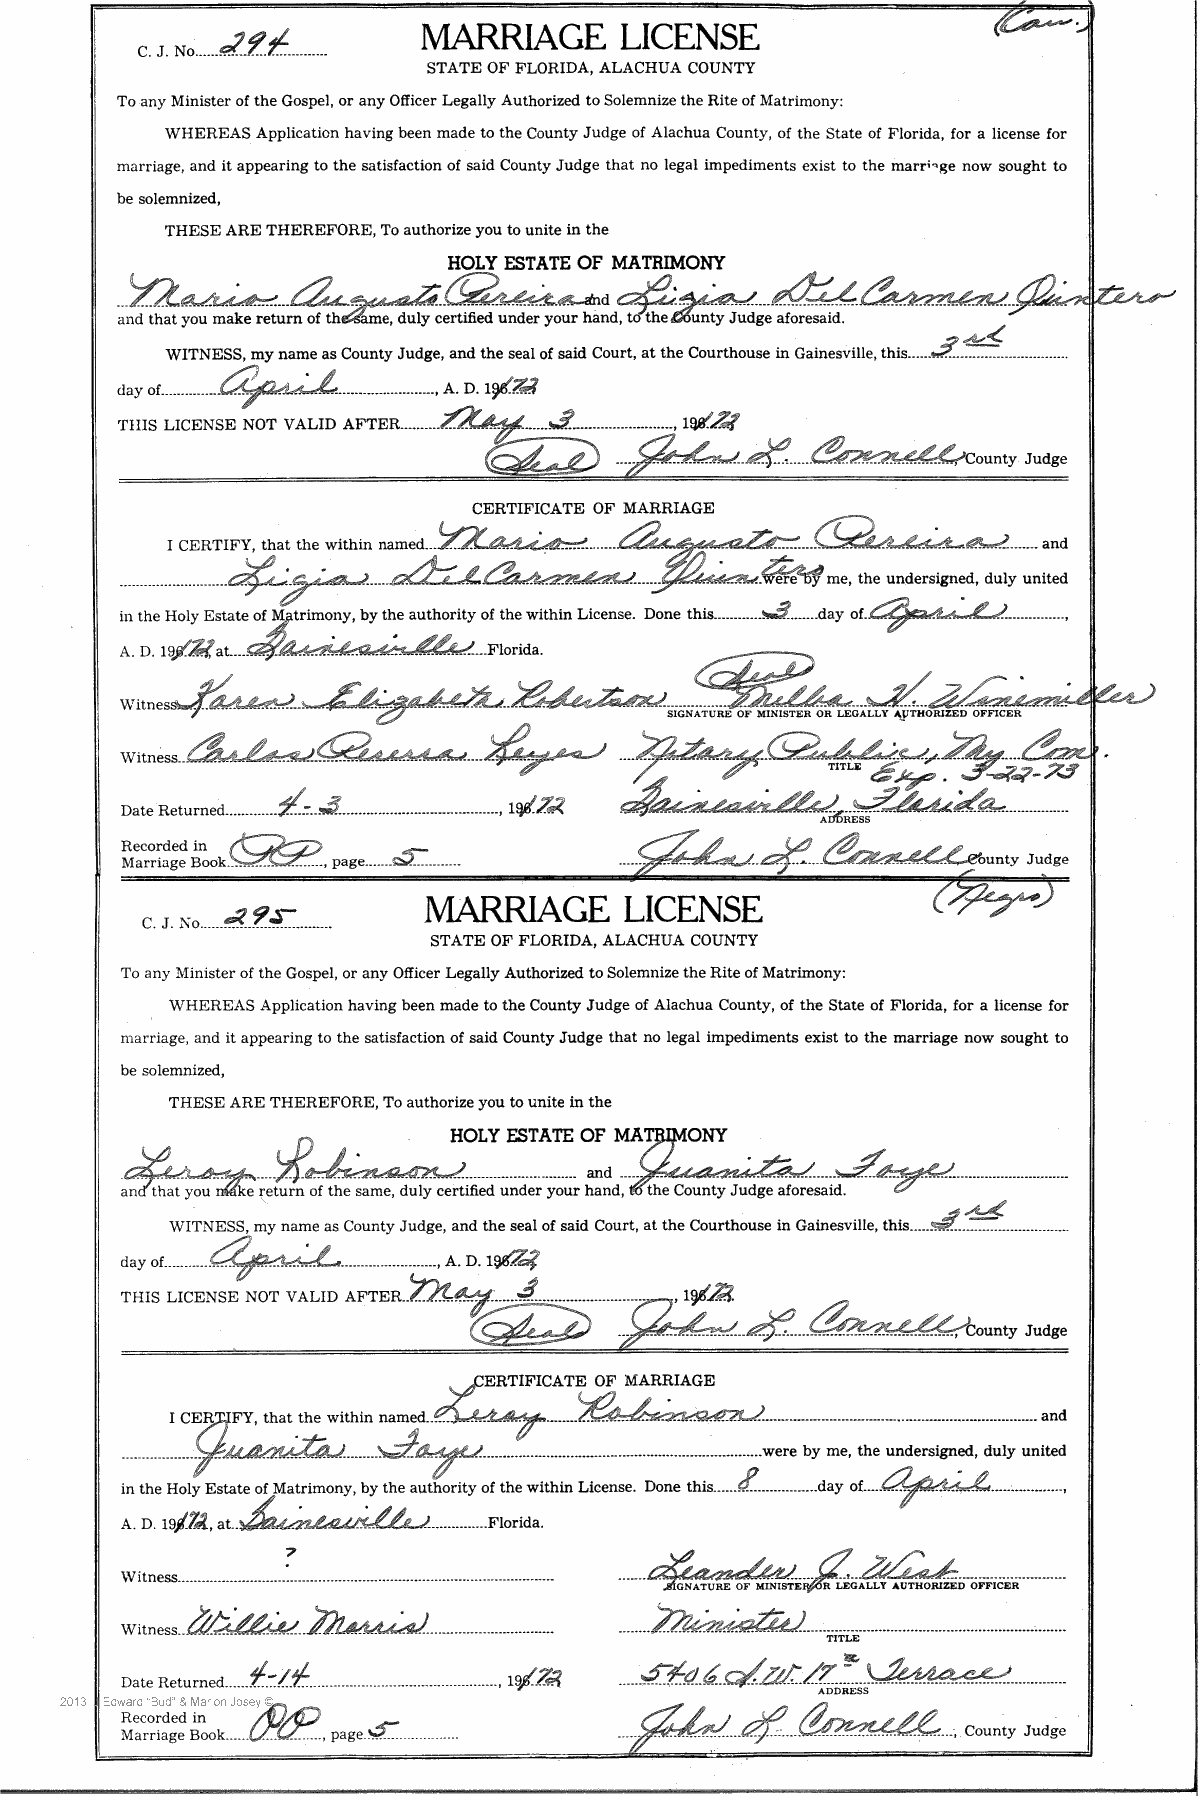 (Cau.)
C. J. No. 294
MARRIAGE LICENSE
STATE OF FLORIDA, ALACHUA COUNTY
To any Minister of the Gospel, or any Officer Legally Authorized to Solemnize the Rite of Matrimony:
WHEREAS Application having been made to the County Judge of Alachua County, of the State of Florida, for a license for
marriage, and it appearing to the satisfaction of said County Judge that no legal impediments exist to the marriage now sought to
be solemnized,
THESE ARE THEREFORE, To authorize you to unite in the
HOLY ESTATE OF MATRIMONY
Mario Augusto Pereira and Ligia Del Carmen Quintero
and that you make return of the same, duly certified under your hand, to the County Judge aforesaid.
WITNESS, my name as County Judge, and the seal of said Court, at the Courthouse in Gainesville, this 3rd
day of April, A. D. 1972
THIS LICENSE NOT VALID AFTER May 3, 1972
(Seal) John L. Connell, County Judge
CERTIFICATE OF MARRIAGE
I CERTIFY, that the within named Mario Augusto Pereira and
Ligia Del Carmen Quintero were by me, the undersigned, duly united
in the Holy Estate of Matrimony, by the authority of the within License. Done this 3 day of April,
A. D. 1972, at Gainesville Florida.
(Seal)
Witness Karen Elizabeth Robertson Melba H. Winemiller
SIGNATURE OF MINISTER OR LEGALLY AUTHORIZED OFFICER
Witness Carlos Pererra Leyes Notary Public, My Com.
TITLE Exp. 3-22-73
Date Returned 4-3, 1972 Gainesville, Florida
ADDRESS
Recorded in
Marriage Book PP, page 5 John L. Connell County Judge
(Negro)
C. J. No. 295
MARRIAGE LICENSE
STATE OF FLORIDA, ALACHUA COUNTY
To any Minister of the Gospel, or any Officer Legally Authorized to Solemnize the Rite of Matrimony:
WHEREAS Application having been made to the County Judge of Alachua County, of the State of Florida, for a license for
marriage, and it appearing to the satisfaction of said County Judge that no legal impediments exist to the marriage now sought to
be solemnized,
THESE ARE THEREFORE, To authorize you to unite in the
HOLY ESTATE OF MATRIMONY
Leroy Robinson and Juanita Faye
and that you make return of the same, duly certified under your hand, to the County Judge aforesaid.
WITNESS, my name as County Judge, and the seal of said Court, at the Courthouse in Gainesville, this 3rd
day of April, A. D. 1972
THIS LICENSE NOT VALID AFTER May 3, 1972
(Seal) John L. Connell, County Judge
CERTIFICATE OF MARRIAGE
I CERTIFY, that the within named Leroy Robinson and
Juanita Faye were by me, the undersigned, duly united
in the Holy Estate of Matrimony, by the authority of the within License. Done this 8 day of April,
A. D. 1972, at Gainesville Florida.
Witness ? Leander J. West
SIGNATURE OF MINISTER OR LEGALLY AUTHORIZED OFFICER
Witness Willie Morris Minister
TITLE
Date Returned 4-14, 1972 5406 S.W. 17th Terrace
ADDRESS
2013 Edward "Bud" & Marion Josey ©
Recorded in
Marriage Book PP, page 5 John L. Connell, County Judge